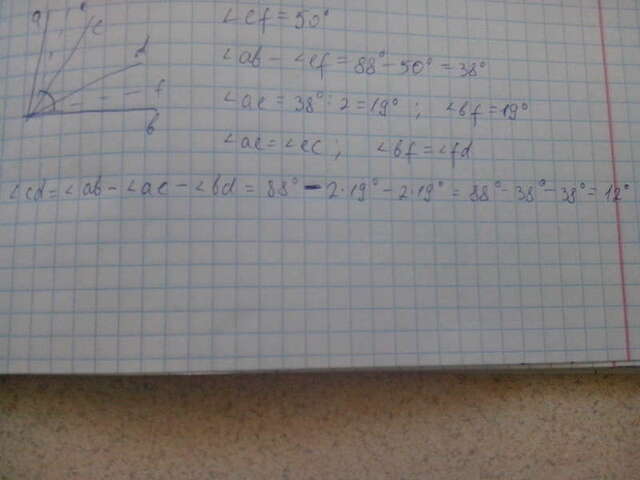 a e c
d
f
b
∠ef = 50°
∠ab - ∠ef = 88° - 50° = 38°
∠ae = 38° : 2 = 19° ; ∠bf = 19°
∠ae = ∠ec ; ∠bf = ∠fd
∠cd = ∠ab - ∠ac - ∠bd = 88° - 2·19° - 2·19° = 88° - 38° - 38° = 12°